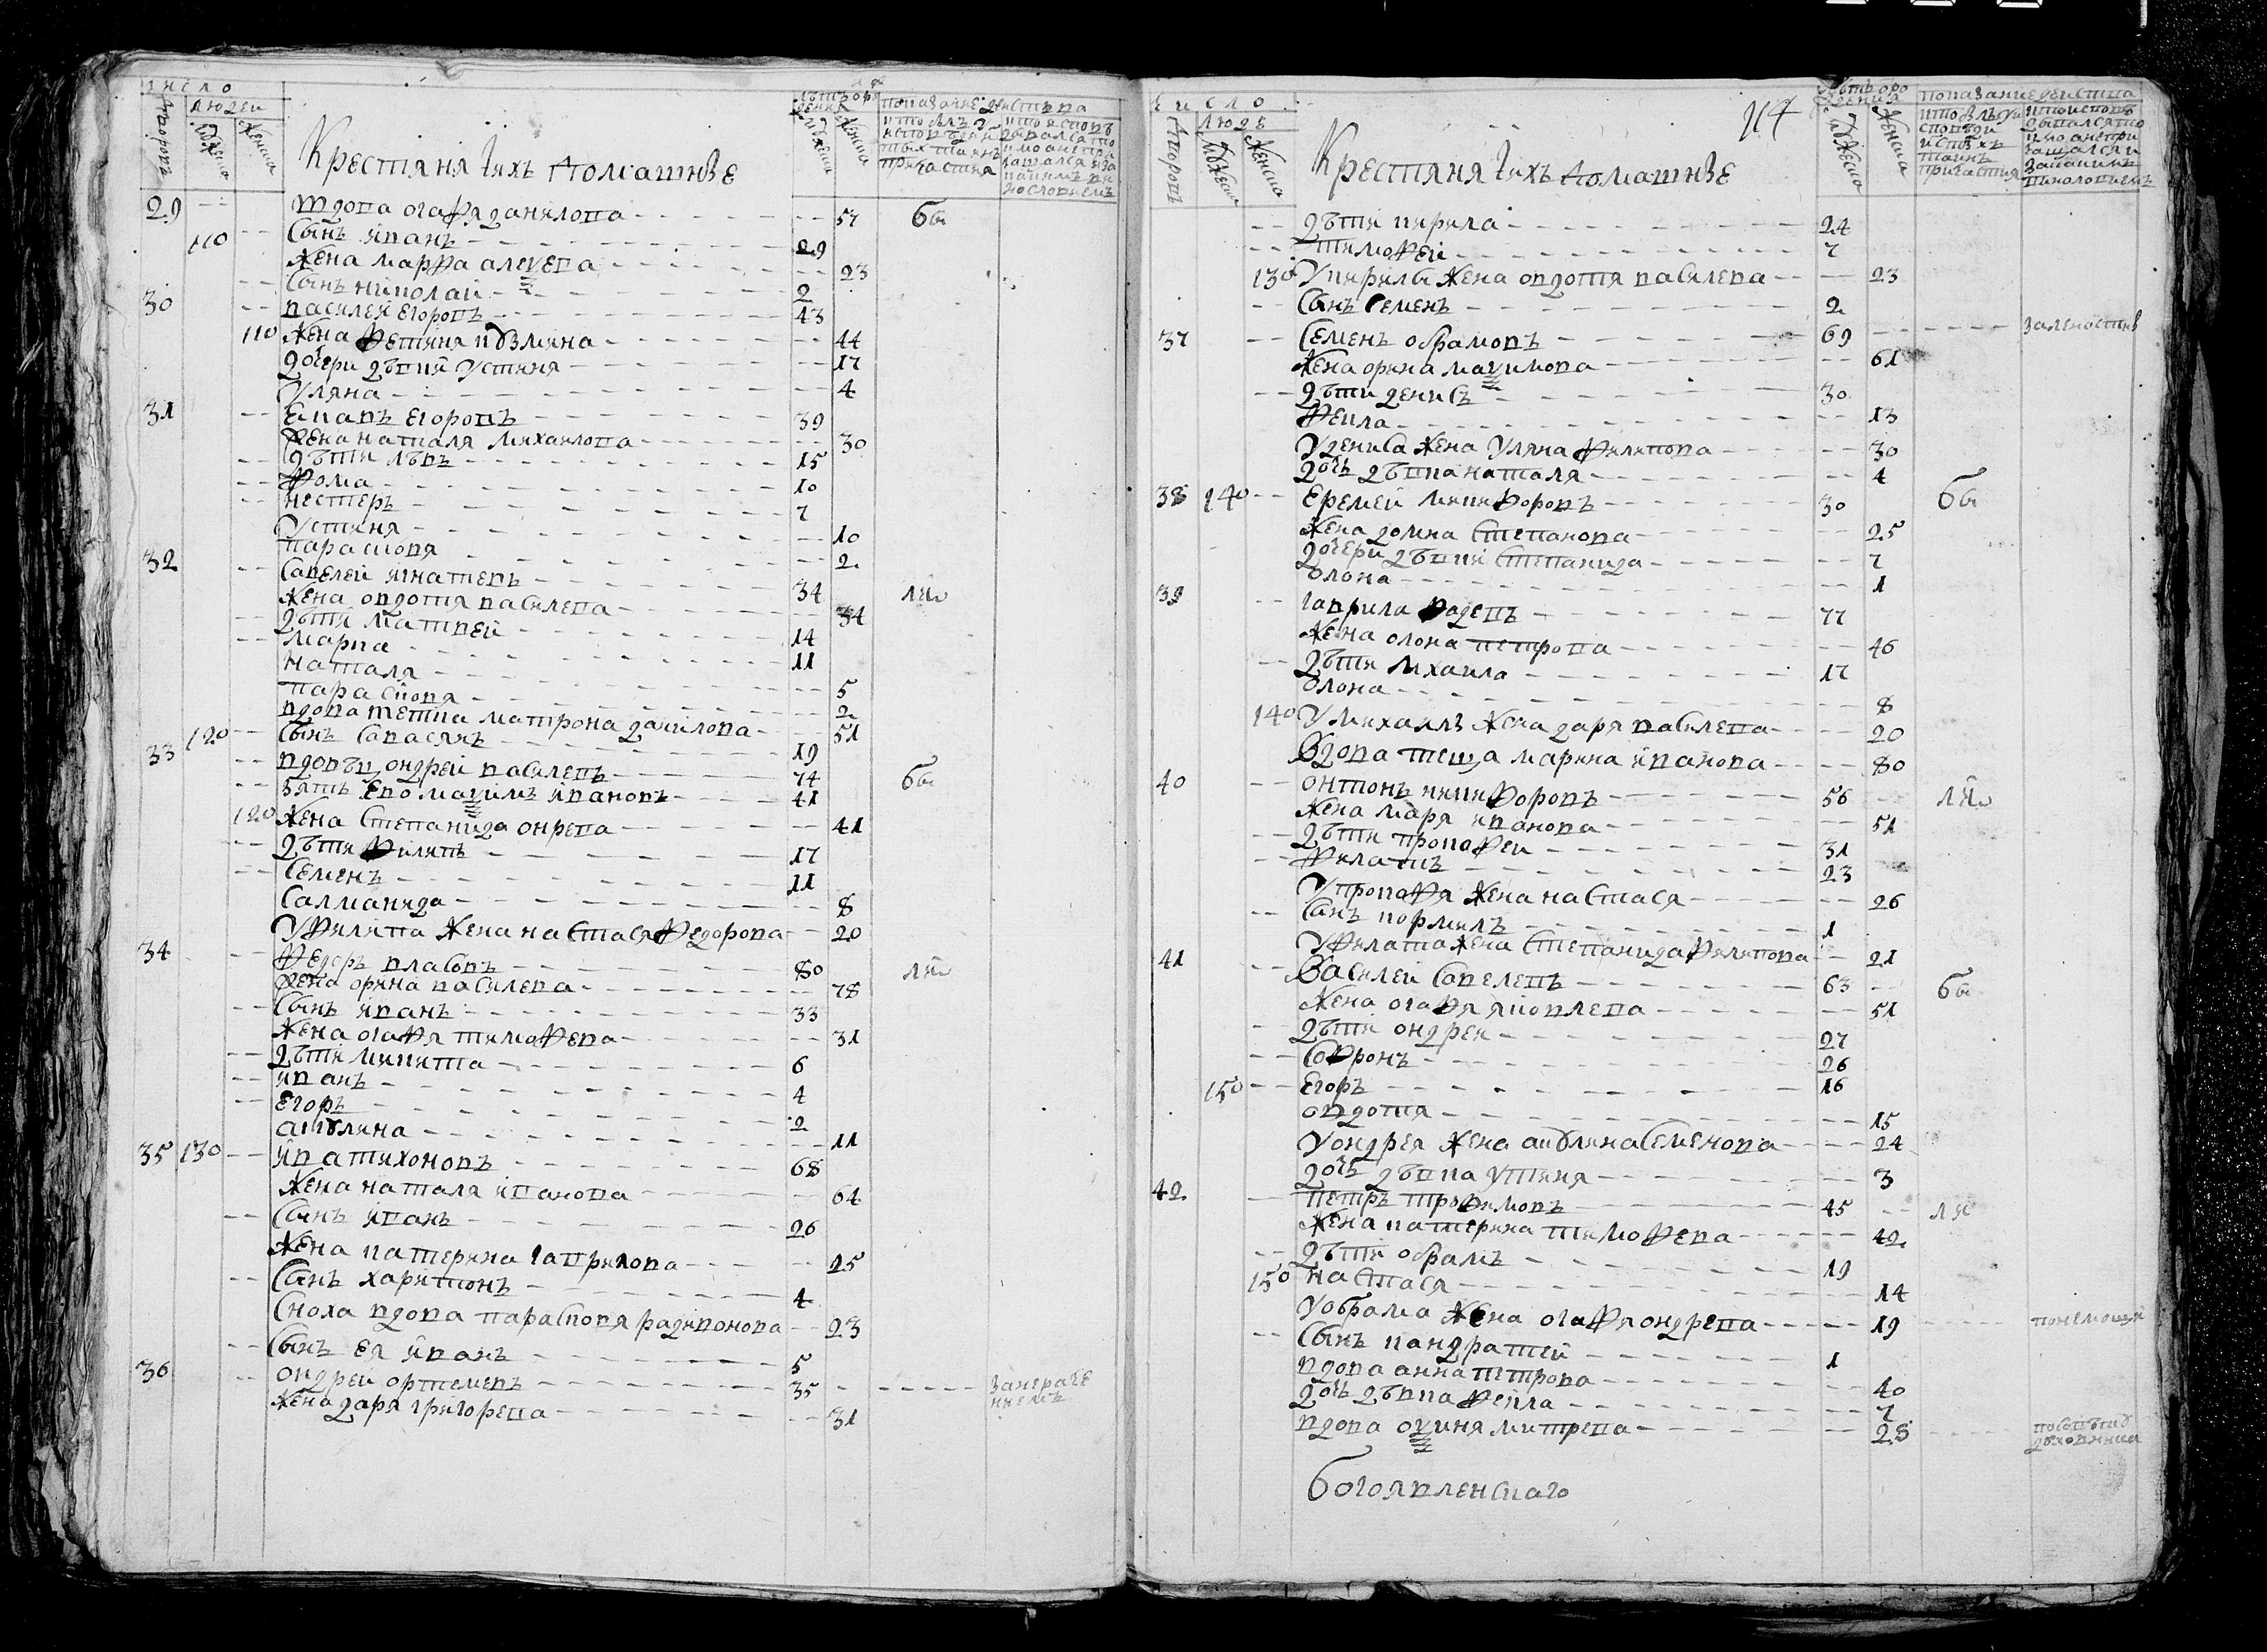 число
людей
дворовъ
мужеска
женска
Крестяня и ихъ домашние
лѣтъ от рождения
мужеска
женска
показание действа
29 вдова огафя данилова 57 бы
110 сынъ иванъ 29
жена марфа алеѯева 23
сынъ николай 2
30 василей егоровъ 43
110 жена фетиня кузмина 44
дочери дѣвки устиня 17
уляна 4
31 егоровъ 39
жена наталя михаилова 30
дѣти лѣвъ 15
фома 10
нестеръ 7
устиня 10
парасковя 2
32 савелей игнатевъ 34 лии
жена овдотя василева 34
дѣти матвей 14
марка 11
наталя 5
парасковя 2
вдова тетка матрона данилова 51
120 сынъ савасянъ 19
33 вдовъц ондрей василевъ 74 бы
зять ево маѯимъ ивановъ 41
120 жена степанида онрева 41
дѣти филипъ 17
семенъ 11
саламанида 8
у филипа жена настася федорова 20
34 федоръ власовъ 80 лии
жена орина василева 78
сынъ иванъ 33
жена огафя тимофева 31
дѣти микита 6
иванъ 4
егоръ 2
акулина 11
35 130 ива тихоновъ 68
жена наталя иванова 61
сынъ иванъ 26
жена катерина гаврилова 25
сынъ харитонъ 4
сноха вдова парасковя радивонова 23
сынъ ея иванъ 5
36 ондрей ортемевъ 35
жена даря григорева 31
114
число
людей
дворовъ
мужеска
женска
Крестяня и ихъ домашние
показание действа
дѣти кирила 24
тимофей 7
130 у кирилы жена овдотя василева 23
сынъ семенъ 2
37 семенъ обрамовъ 69
жена орина маѯимова 61
дѣти денисъ 30
фекла 13
у дениса жена уляна филипова 30
дочь дѣвка наталя 4
38 140 еремей микифоровъ 30 бы
жена домна степанова 25
дочери дѣвки степанида 7
олона 1
39 гаврила фадевъ 77
жена олона петрова 46
дѣти михаила 17
олона 8
140 у михаилы жена даря василева 20
вдова теща марина иванова 80
40 онтонъ никифоровъ 56 лии
жена маря иванова 51
дѣти прокофеи 31
филатъ 23
у прокофя жена настася 26
сынъ кормилъ 1
у филата жена степанида филипова 21
41 василей савелевъ 63 бы
жена огафя яковлева 51
дѣти ондрей 27
софронъ 26
150 егоръ 16
овдотя 15
у ондрея жена акулина семенова 24
дочь дѣвка устиня 3
42 петръ трофимовъ 45 лии
жена катерина тимофева 42
дѣти обрамъ 19
150 настася 14
у обрама жена огафя ондрева 19
сынъ кандратей 1
вдова анна петрова 40
дочь дѣвка фекла 7
вдова оѯиня митрева 28
богоявленскаго